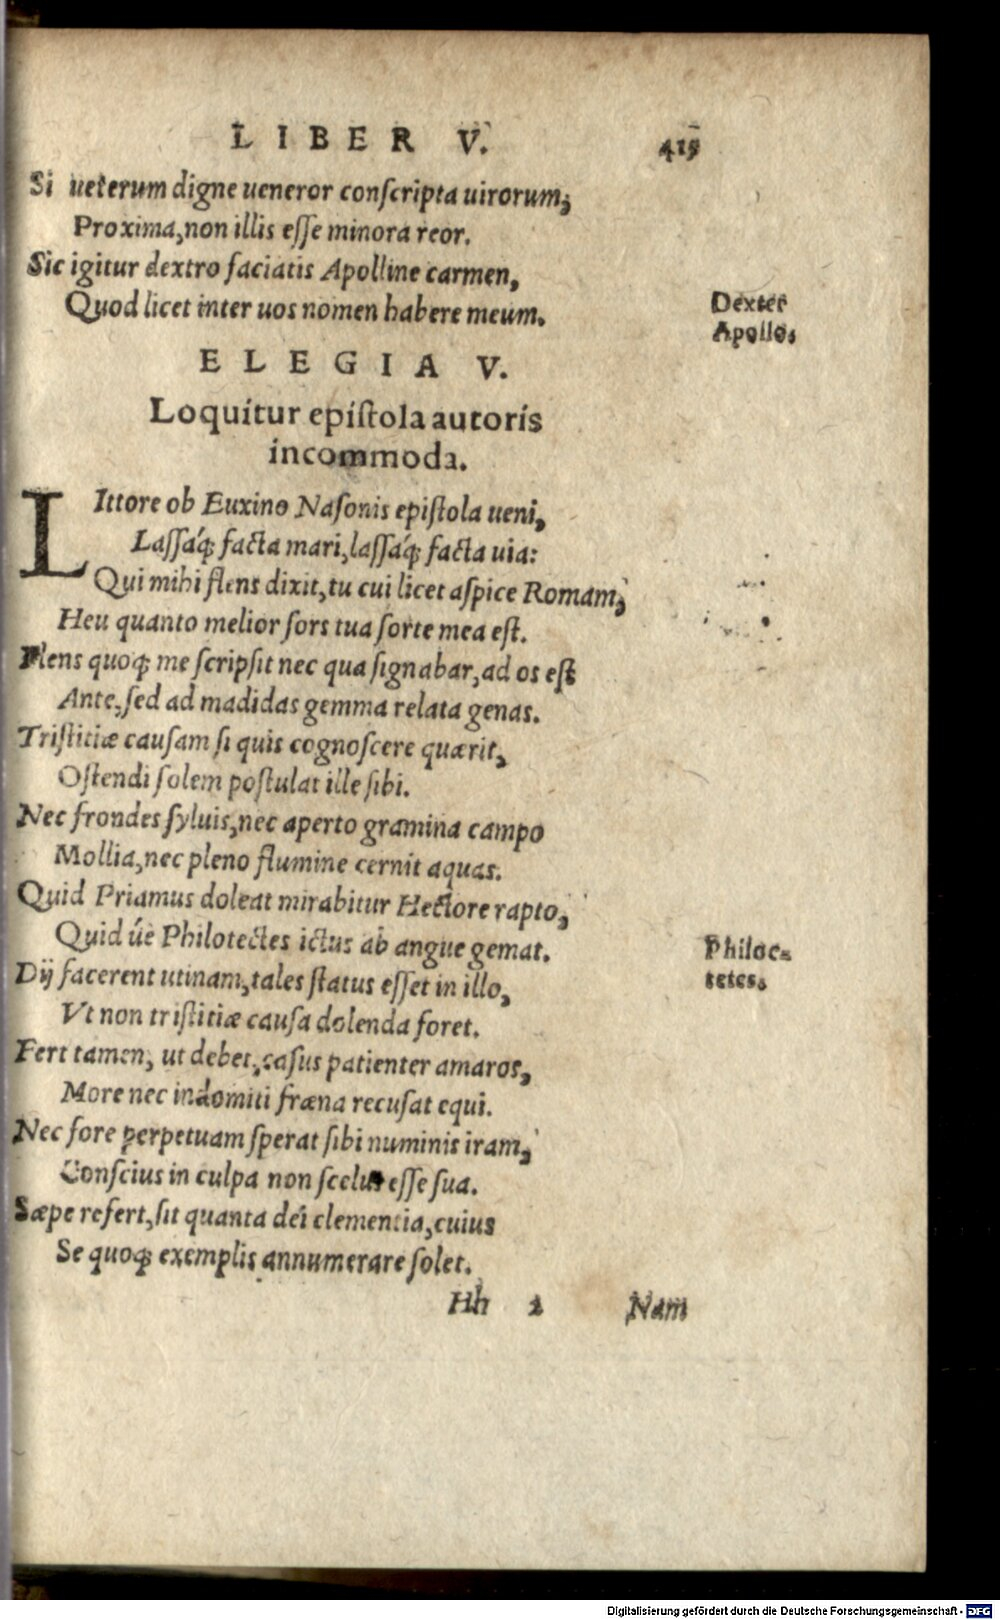 LIBER V. 415
Si ueterum digne ueneror conscripta uirorum,
Proxima, non illis esse minora reor.
Sic igitur dextro faciatis Apolline carmen,
Quod licet inter uos nomen habere meum.
Dexter
Apollo.
ELEGIA V.
Loquitur epistola autoris
incommoda.
LIttore ob Euxino Nasonis epistola ueni,
Lassáq; facta mari, lassáq; facta uia:
Qui mihi flens dixit, tu cui licet aspice Romam,
Heu quanto melior sors tua sorte mea est.
Flens quoq; me scripsit nec qua signabar, ad os est
Ante, sed ad madidas gemma relata genas.
Tristitiæ causam si quis cognoscere quærit,
Ostendi solem postulat ille sibi.
Nec frondes syluis, nec aperto gramina campo
Mollia, nec pleno flumine cernit aquas.
Quid Priamus doleat mirabitur Hectore rapto,
Quid úe Philotectes ictus ab angue gemat.
Philoc-
tetes.
Dij facerent utinam, tales status esset in illo,
Vt non tristitiæ causa dolenda foret.
Fert tamen, ut debet, casus patienter amaros,
More nec indomiti fræna recusat equi.
Nec fore perpetuam sperat sibi numinis iram,
Conscius in culpa non scelus esse sua.
Sæpe refert, sit quanta dei clementia, cuius
Se quoq; exemplis annumerare solet.
Hh 2 Nam
Digitalisierung gefördert durch die Deutsche Forschungsgemeinschaft - DFG